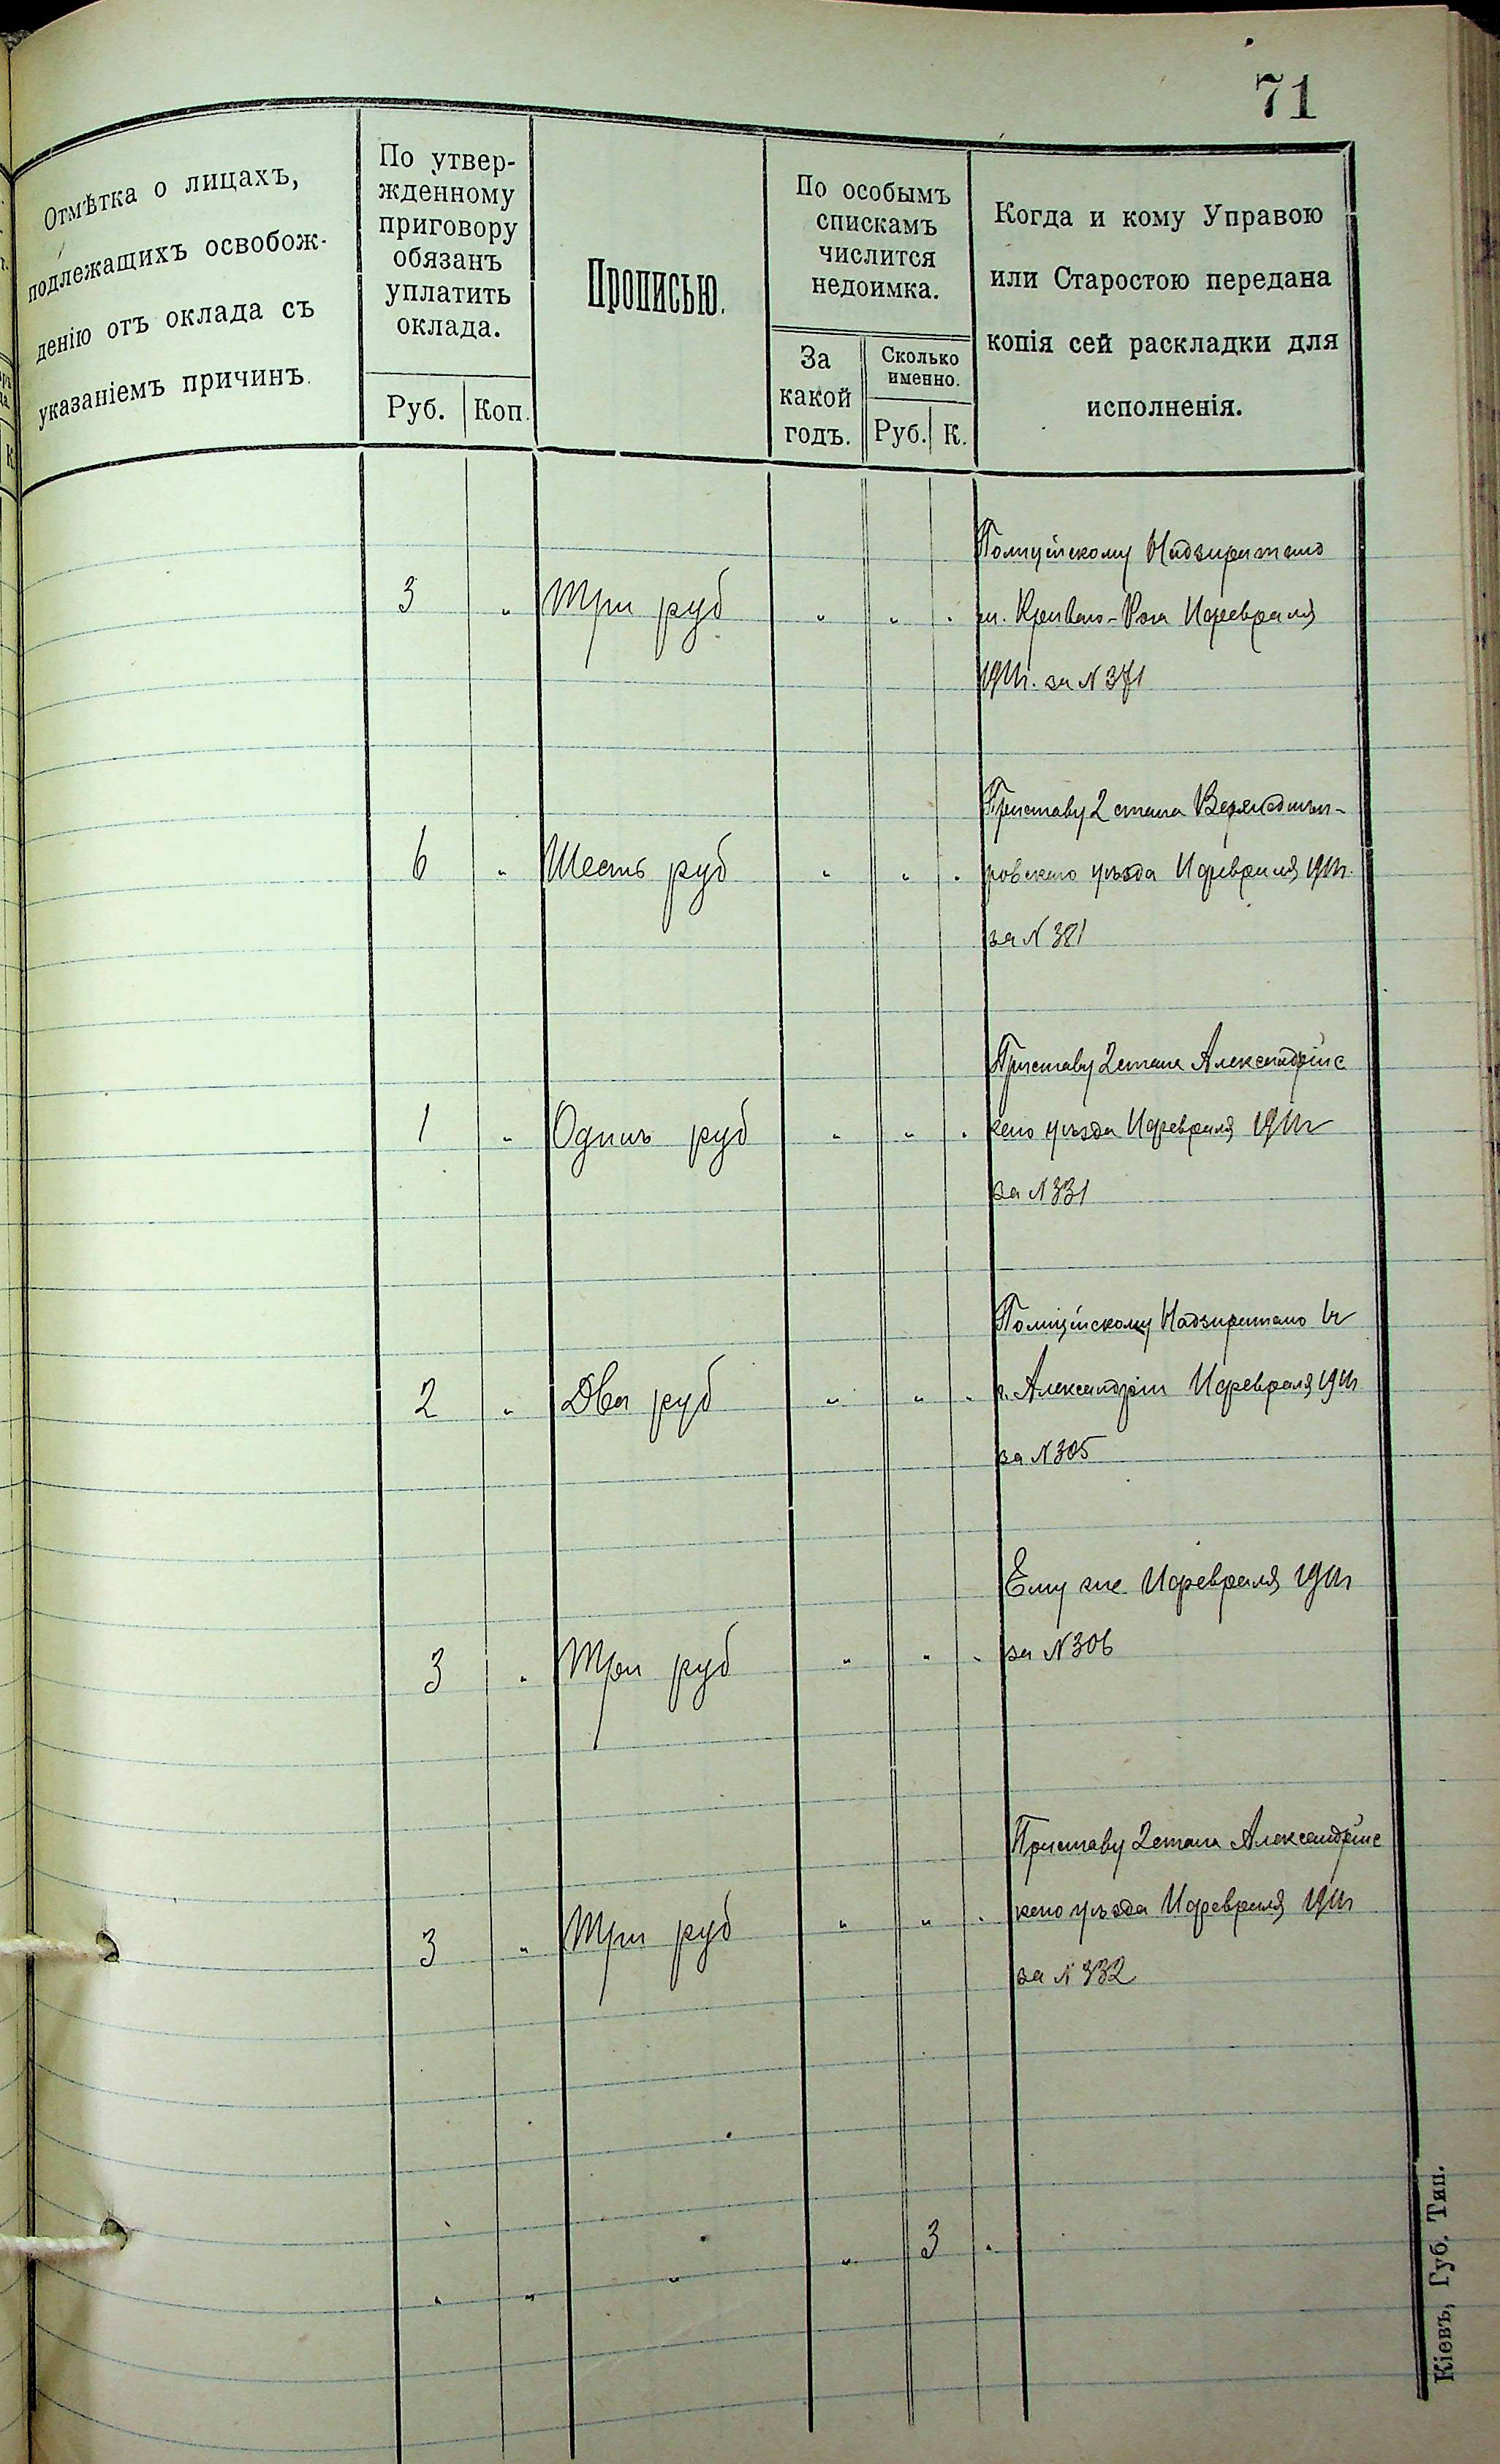 71
Отмѣтка о лицахъ,
подлежащихъ освобож-
денію отъ оклада съ
указаніемъ причинъ.
По утвер-
жденному
приговору
обязанъ
уплатить
оклада.
Руб. Коп.
Прописью.
По особымъ
спискамъ
числится
недоимка.
За
какой
годъ.
Сколько
именно.
Руб. К.
Когда и кому Управою
или Старостою передана
копія сей раскладки для
исполненія.
Полицейскому Надзирателю
3 " Три руб " " " м. Кривого-Рога 11 февраля
1911г. за N 371
Приставу 2 стана Верхнеднѣп-
6 " Шесть руб " " " ровскаго уѣзда 11 февраля 1911г.
за N 381
Приставу 2 стана Александрійс
1 " Одинъ руб " " " каго уѣзда 11 февраля 1911г
за N 331
Полицейскому Надзирателю
2 " Два руб " " " г. Александріи 11 февраля 1911г
за N 305
Ему же 11 февраля 1911г
3 " Три руб " " " за N 306
Приставу 2 стана Александрійс
3 " Три руб " " " каго уѣзда 11 февраля 1911г
за N 332
" " " " 3 "
Кіевъ, Губ. Тип.